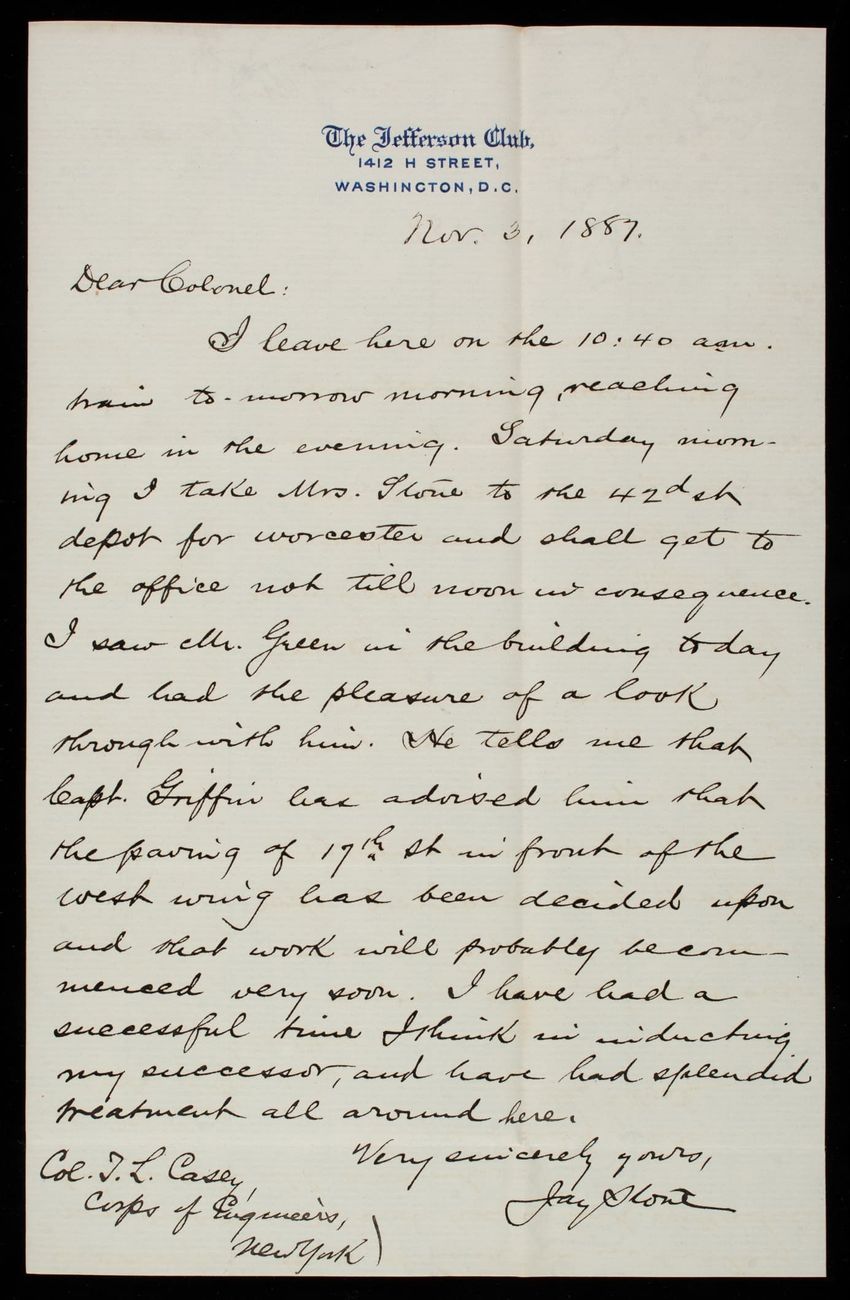 The Jefferson Club,
1412 H STREET,
WASHINGTON, D.C.
Nov. 3, 1887.
Dear Colonel:
I leave here on the 10:40 a.m.
train to-morrow morning, reaching
home in the evening. Saturday morn-
ing I take Mrs. Stone to the 42d st
depot for Worcester and shall get to
the office not till noon in consequence.
I saw Mr. Green in the building today
and had the pleasure of a look
through with him. He tells me that
Capt. Griffin has advised him that
the paving of 17th st in front of the
west wing has been decided upon
and that work will probably be com-
menced very soon. I have had a
successful time I think in inducting
my successor, and have had splendid
treatment all around here.
Very sincerely yours,
Jay Stone
Col. T. L. Casey,
Corps of Engineers,
New York)